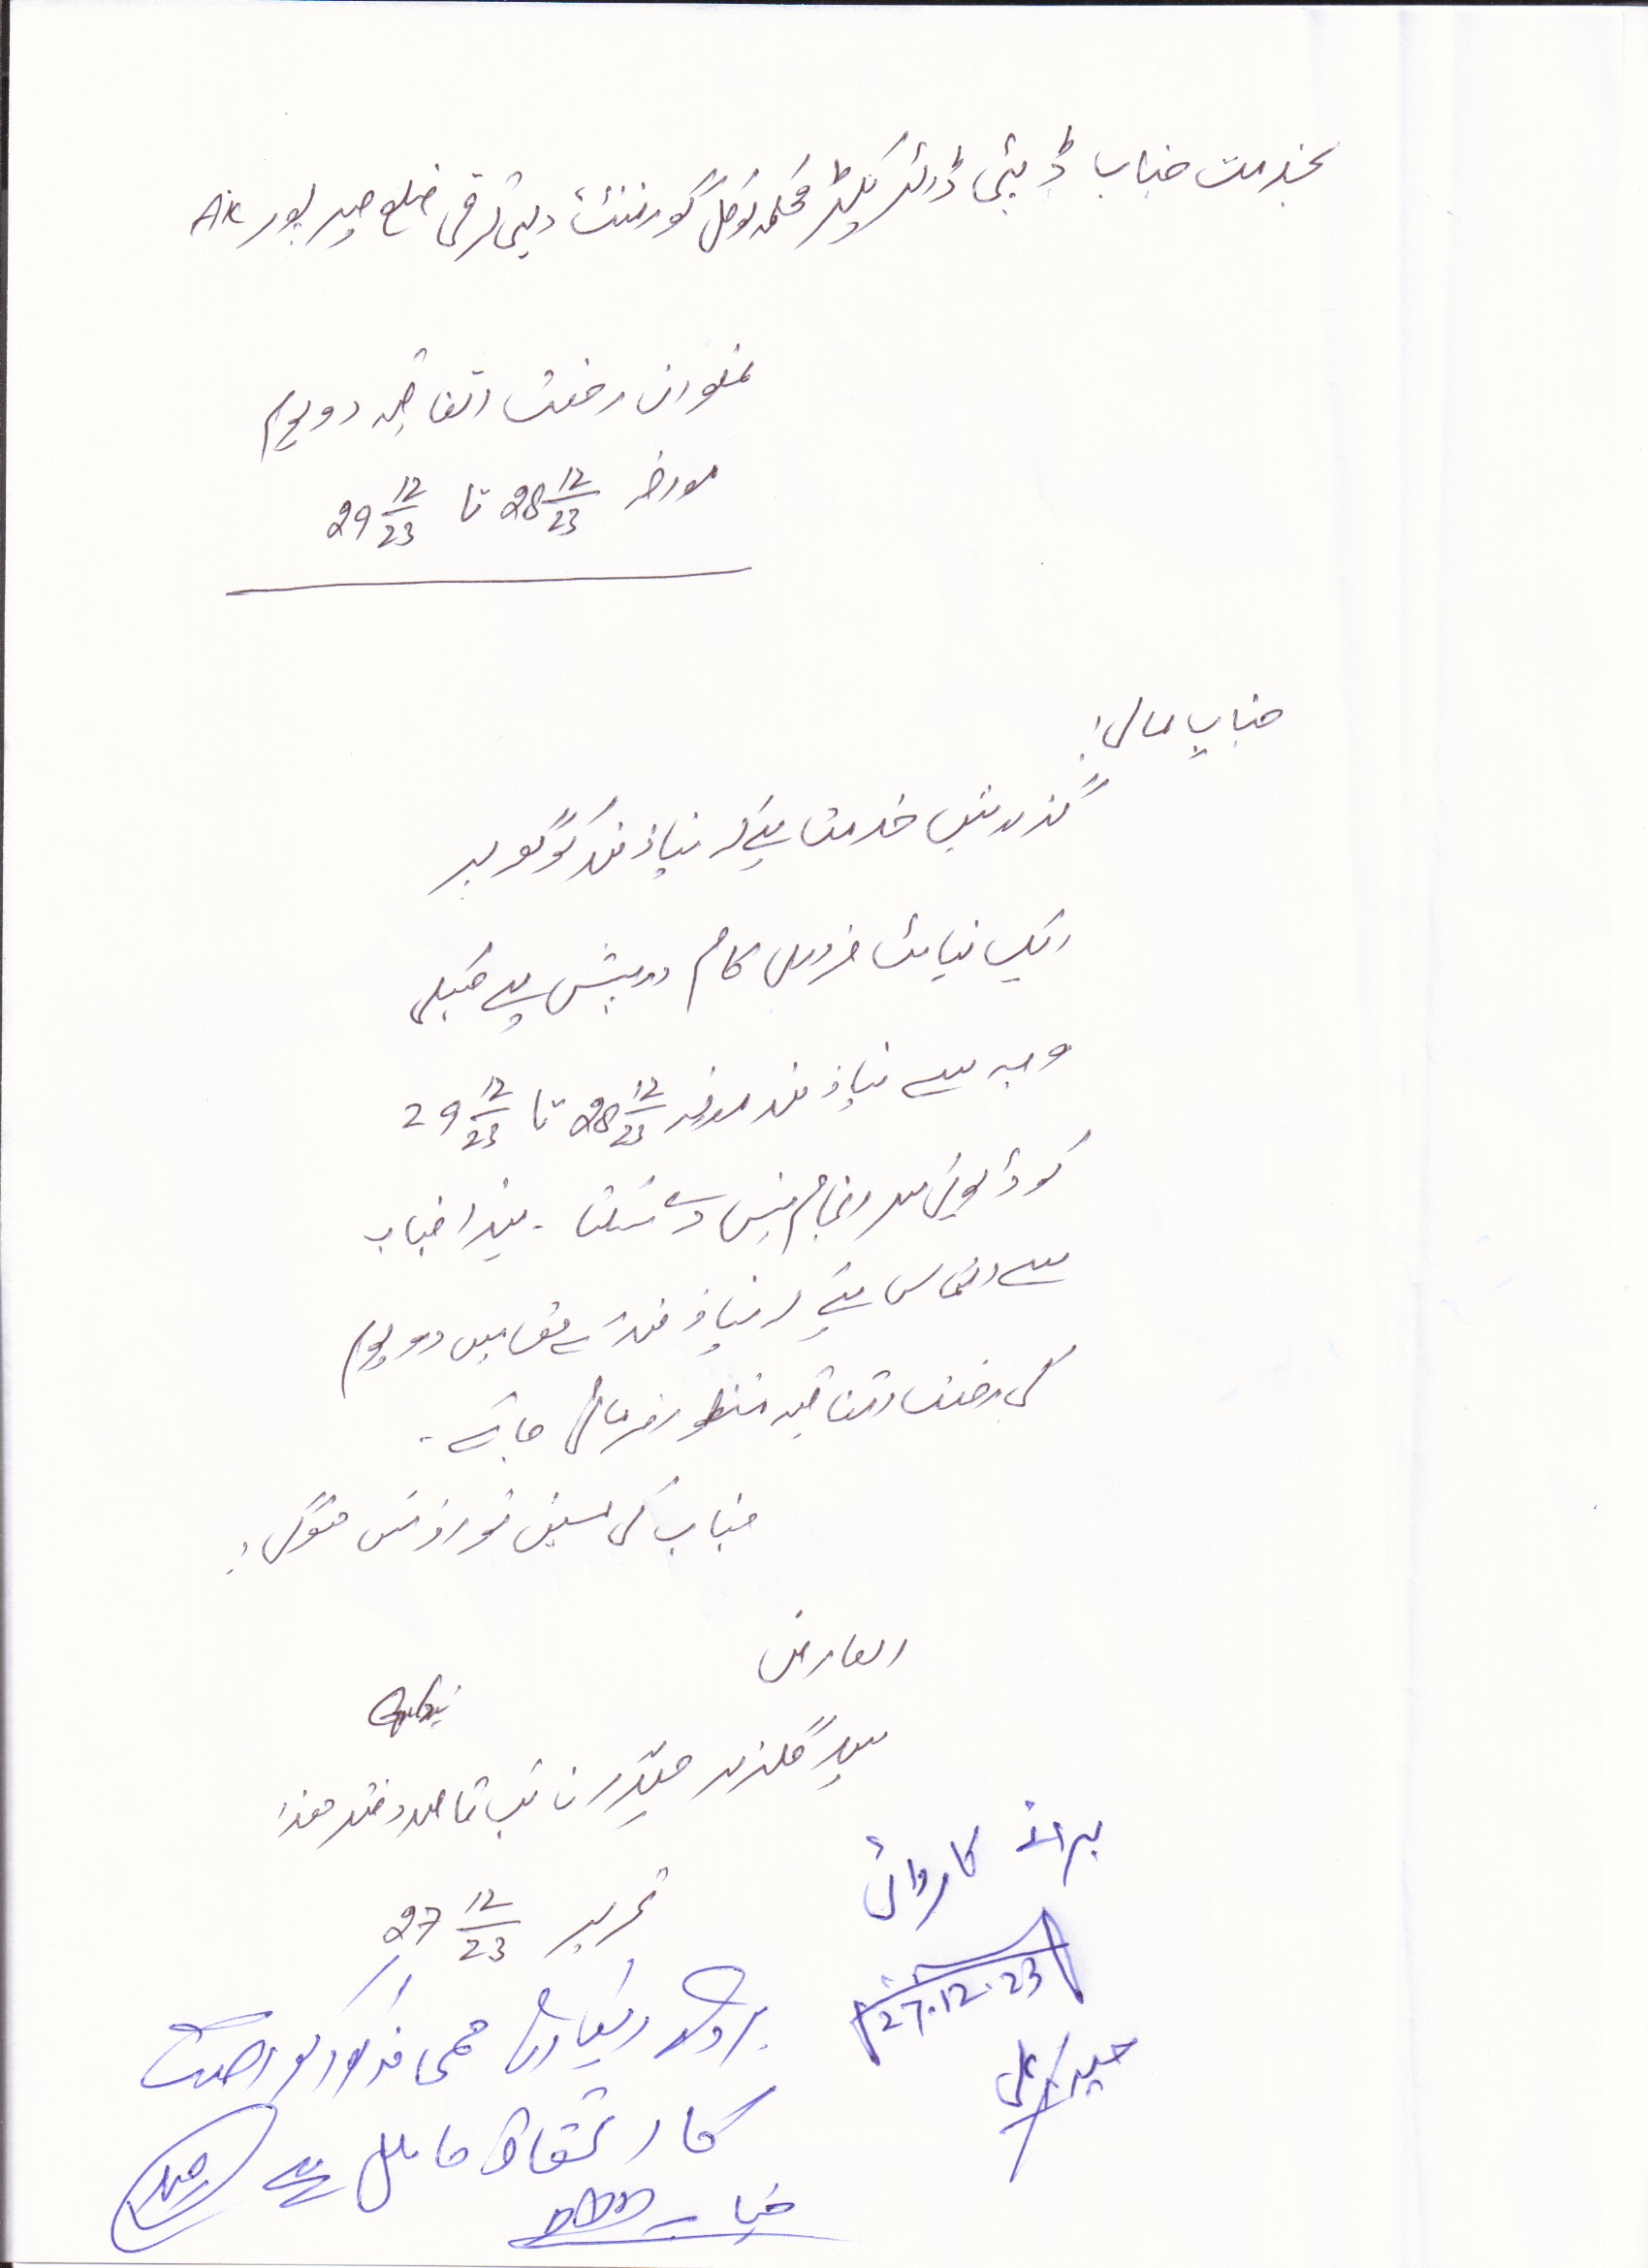 بخدمت جناب ڈپٹی ڈائریکٹر محکمہ لوکل گورنمنٹ دیہی ترقی ضلع میرپور AK
بعنوان رخصت اتفاقیہ دو یوم
مورخہ 28 12/23 تا 29 12/23
جناب عالی!
گذارش خدمت ہیکہ نیازمند کو گھر پر
ایک نہایت ضروری کام درپیش ہے جسکی
وجہ سے نیازمند مورخہ 28 12/23 تا 29 12/23
کو ڈیوٹی سرانجام نہیں دے سکتا ۔ لہذا جناب
سے التماس ہیکہ نیازمند کے حق میں دو یوم
کی رخصت اتفاقیہ منظور فرمائی جائے ۔
جناب کی عین نوازش ہوگی!
العارض
سید گلزار حیدر نائب قاصد دفتر ھذا
تحریر 27 12/23
برائے کاروائی
27.12.23
حیدر علی
بروئے ریکارڈ مسمی مذکور رخصت
کا استحقاق حامل ہے
جناب DD